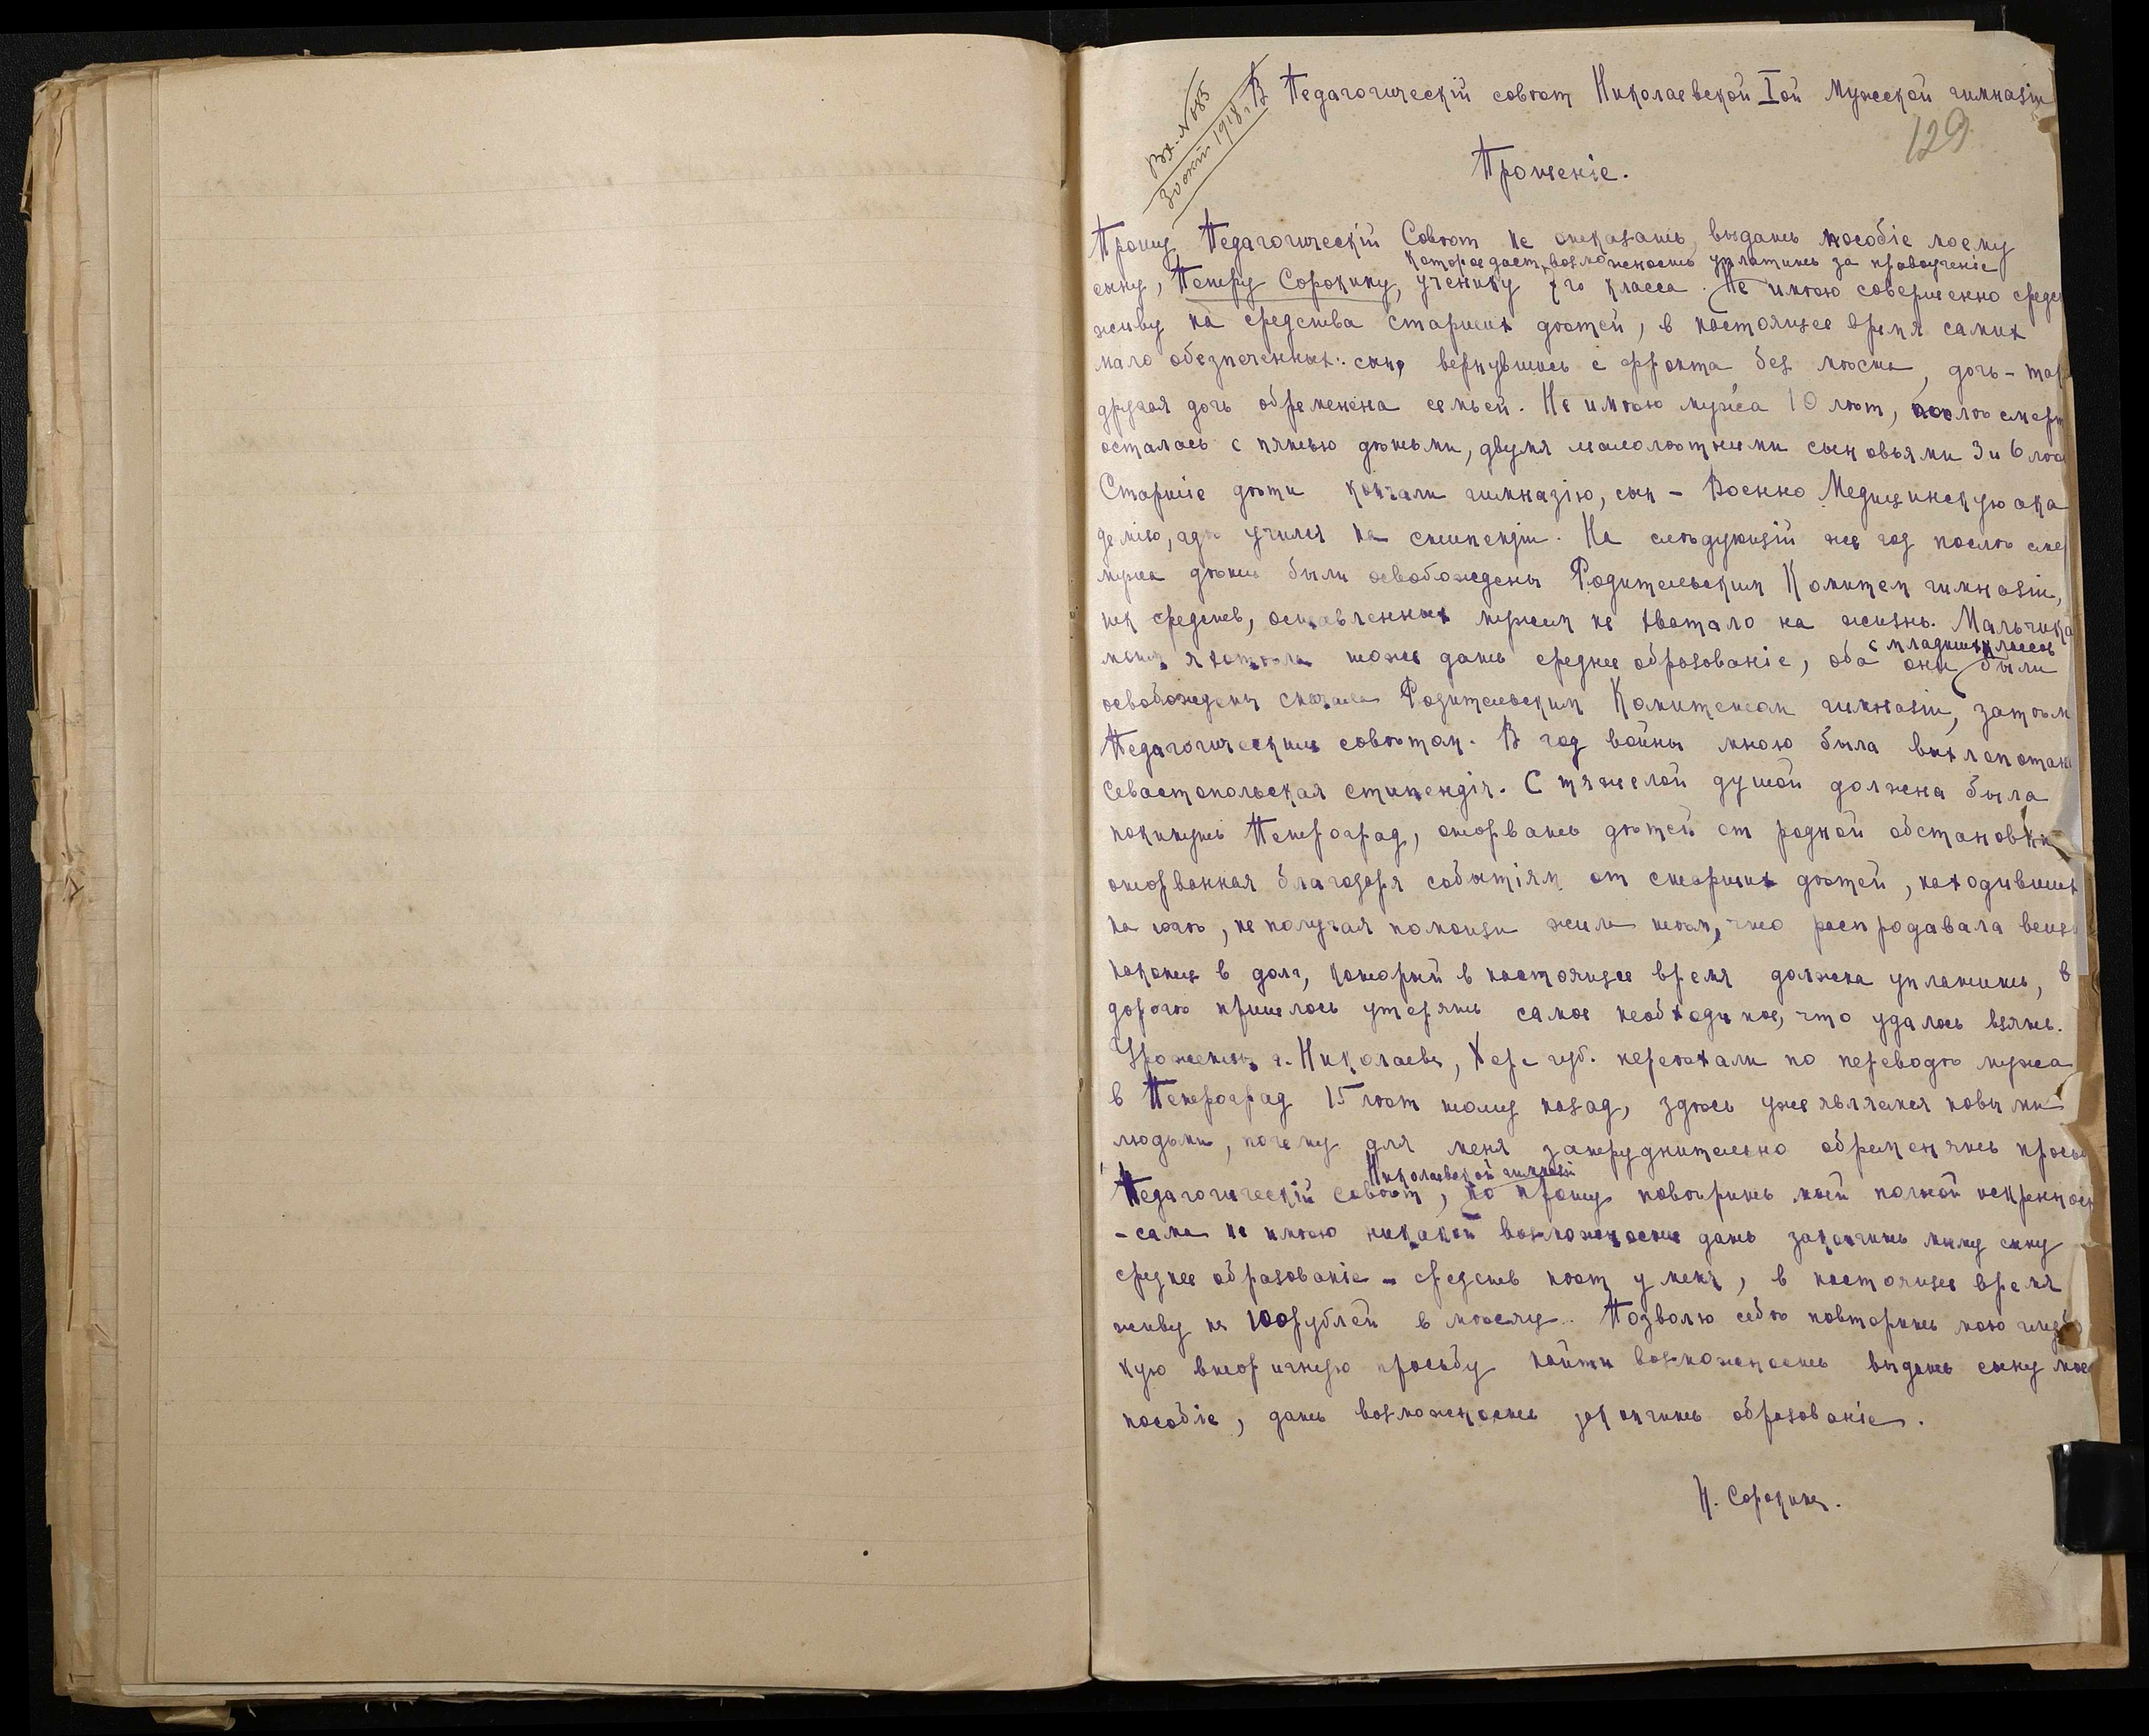 Вх. N 685
30 окт 1918 г.
В Педагогическій совѣт Николаевской Iой Мужской гимназіи
129
Прошеніе.
Прошу Педагогическій Совѣт не отказать выдать пособіе моему
которое даст возможность уплатить за правоученіе
сыну, Петру Сорокину, ученику 7го класса. Не имѣю совершенно сред
живу на средства старших дѣтей, в настоящее время самих
мало обезпеченных: сын, вернувшись с фронта без мѣста, дочь -
другая дочь обременена семьей. Не имѣю мужа 10 лѣт, послѣ смерт
осталась с пятью дѣтьми, двумя малолѣтними сыновьями 3 и 6 лѣт
Старшіе дѣти кончали гимназію, сын - Военно Медицинскую ака
демію, гдѣ учился на стипендіи. На слѣдующій же год послѣ сме
мужа дѣти были освобождены Родительским Комитем гимназіи,
средств, оставленных мужем не хватало на жизнь. Мальчика
с младших классов
моим я хотѣла тоже дать среднее образованіе, оба они были
освобождены сначала Родительским Комитетом гимназіи, затѣм
Педагогическим совѣтом. В год войны мною была выхлопотан
Севастопольская стипендія. С тяжелой душой должна была
покинуть Петроград, оторвать дѣтей от родной обстановки
оторванная благодаря событіям от старших дѣтей, находивших
на югѣ, не получая помощи жила тѣм, что распродавала вещи
наконец в долг, который в настоящее время должна уплатить, в
дорогѣ пришлось утерять самое необходимое, что удалось взять.
Уроженцы г. Николаева, Херс губ. переѣхали по переводѣ мужа
в Петроград 15 лѣт тому назад, здѣсь уже являемся новыми
людьми, почему для меня затруднительно обременять прось
Николаевской гимназіи
Педагогическій совѣт, но прошу повѣрить моей полной искренност
- сама не имѣю никакой возможности дать закончить моему сыну
среднее образованіе - средств нѣт у меня, в настоящее время
живу на 100 рублей в мѣсяц. Позволю себѣ повторить мою глубо
кую вторичную просьбу найти возможность выдать сыну мое
пособіе, дать возможность закончить образованіе.
Н. Сорокина.